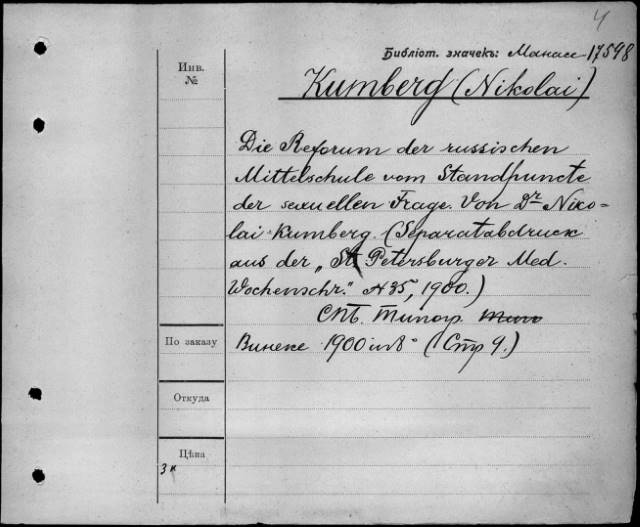 4
Библіот. значекъ: Манасе 17598
Инв.
№
Kumberg (Nikolai)
Die Reforum der russischen
Mittelschule vom Standpuncte
der sexuellen Frage. Von Dr Niko-
lai Kumberg. (Separatabdruck
aus der „St Petersburger Med.
Wochenschr." № 35, 1900.)
СПБ. Типогр.
По заказу
Винеке 1900 in 8° (Стр 9.)
Откуда
Цѣна
3 к